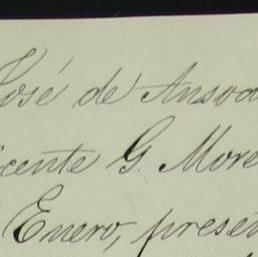 José de Ansoa
icente G. More
Enero, presen